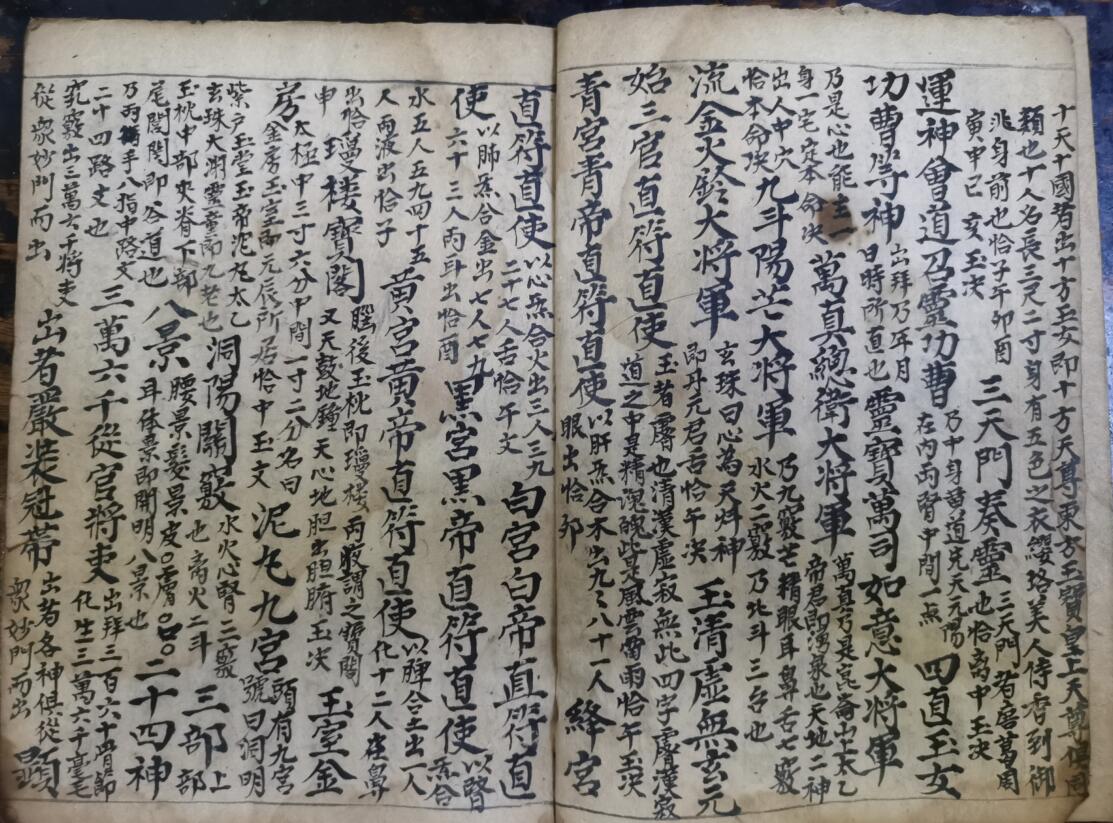 十天十國者出十方玉女即十方天尊東方玉寶皇上天尊俱同
類也十人名長三尺二寸身有五色之衣纓珞美人侍香到御
兆身前也恰子午卯酉
寅申巳亥玉决 三天門奏靈 三天門者磨萬周
也恰离中玉决
運神會道召靈功曹 乃中身黃道先天元陽
在内兩腎中間一点 四直玉女
功曹等神 出拜乃年月
日時所直也 靈寶萬司如意大將軍
乃是心也能主一
身一宅定本命决 萬真總衛大將軍 萬真弓是崑崙山上太乙
帝君即湧泉也天地二神
出人中穴
恰本命决 九斗陽芒大將軍 乃九竅芒精眼耳鼻舌七竅
水火二竅乃北斗三台也
流金火鈴大將軍 玄珠曰心為天神
即丹元君舌恰午决 玉清虛無玄元
始三官直符直使 玉者膚也清漢虛寂無此四字膚漢寂
道之中是精魂魄此是風雲雷雨恰午玉决
青宮青帝直符直使 以肝炁合木出九九八十一人
眼出恰卯 絳宮
直符直使 以心炁合火出三人三九
二十七人舌恰午文 白宮白帝直符直
使 以肺炁合金出七人七九
六十三人兩耳出恰酉 黑宮黑帝直符直使 以腎
炁合
水五人五九四十五
人兩液出恰子 黃宮黃帝直符直使 以脾合土出一人
化十二人在鼻
出恰瓊文
申 樓寶閣 腦後玉枕即瓊楼兩液謂之寶閣
又天鼓地鐘天心地胆出胆腑玉决 玉室金
房 太極中三寸六分中間一寸二分名曰
金房玉室即元辰所居恰中玉文 泥丸九宮 頭有九宮
號曰洞明
紫户玉堂玉帝泥丸太乙
玄珠大淵靈童帝九老也 洞陽關竅 水火心腎二竅
也离火二斗 三部 上
部
玉枕中部夾脊下部
尾閭閭即谷道也 八景 腰景髮景皮〇膚〇〇〇
耳体景即開明八景也 二十四神
乃兩衛手八指中路文
二十四路文也 三萬六千從官將吏 出拜三百六十骨節
化生三萬六千毫毛
究竅出三萬六千將吏
從衆妙門而出 出者嚴裝冠帶 出者各神俱從
衆妙門而出 顕